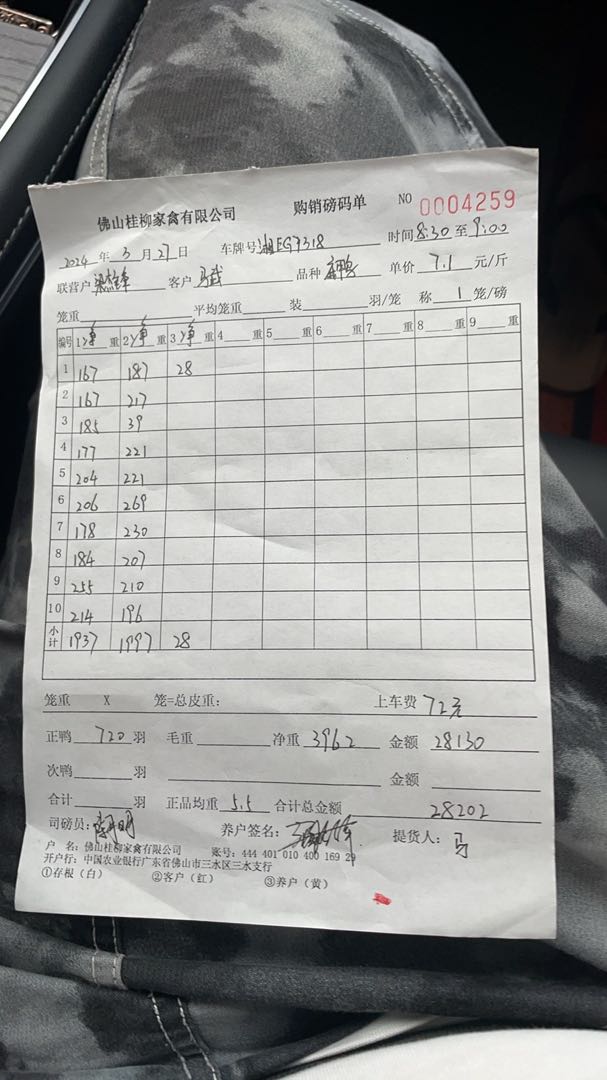 佛山桂柳家禽有限公司 购销磅码单 NO 0004259
2024 年 3 月 27 日 车牌号 湘EG7318 时间 8:30 至 9:00
联营户 客户 马武 品种 单价 7.1 元/斤
笼重 平均笼重 装 羽/笼 称 1 笼/磅
编号 1 净 重 2 净 重 3 净 重 4 重 5 重 6 重 7 重 8 重 9 重
1 167 187 28
2 167 217
3 185 39
4 177 221
5 204 221
6 206 269
7 178 230
8 184 207
9 255 210
10 214 196
小计 1937 1997 28
笼重 X 笼=总皮重: 上车费 72元
正鸭 720 羽 毛重 净重 3962 金额 28130
次鸭 羽 金额
合计 羽 正品均重 5.5 合计总金额 28202
司磅员: 养户签名: 提货人: 马
户 名: 佛山桂柳家禽有限公司 账号: 444 401 010 400 169 29
开户行: 中国农业银行广东省佛山市三水区三水支行
①存根（白） ②客户（红） ③养户（黄）